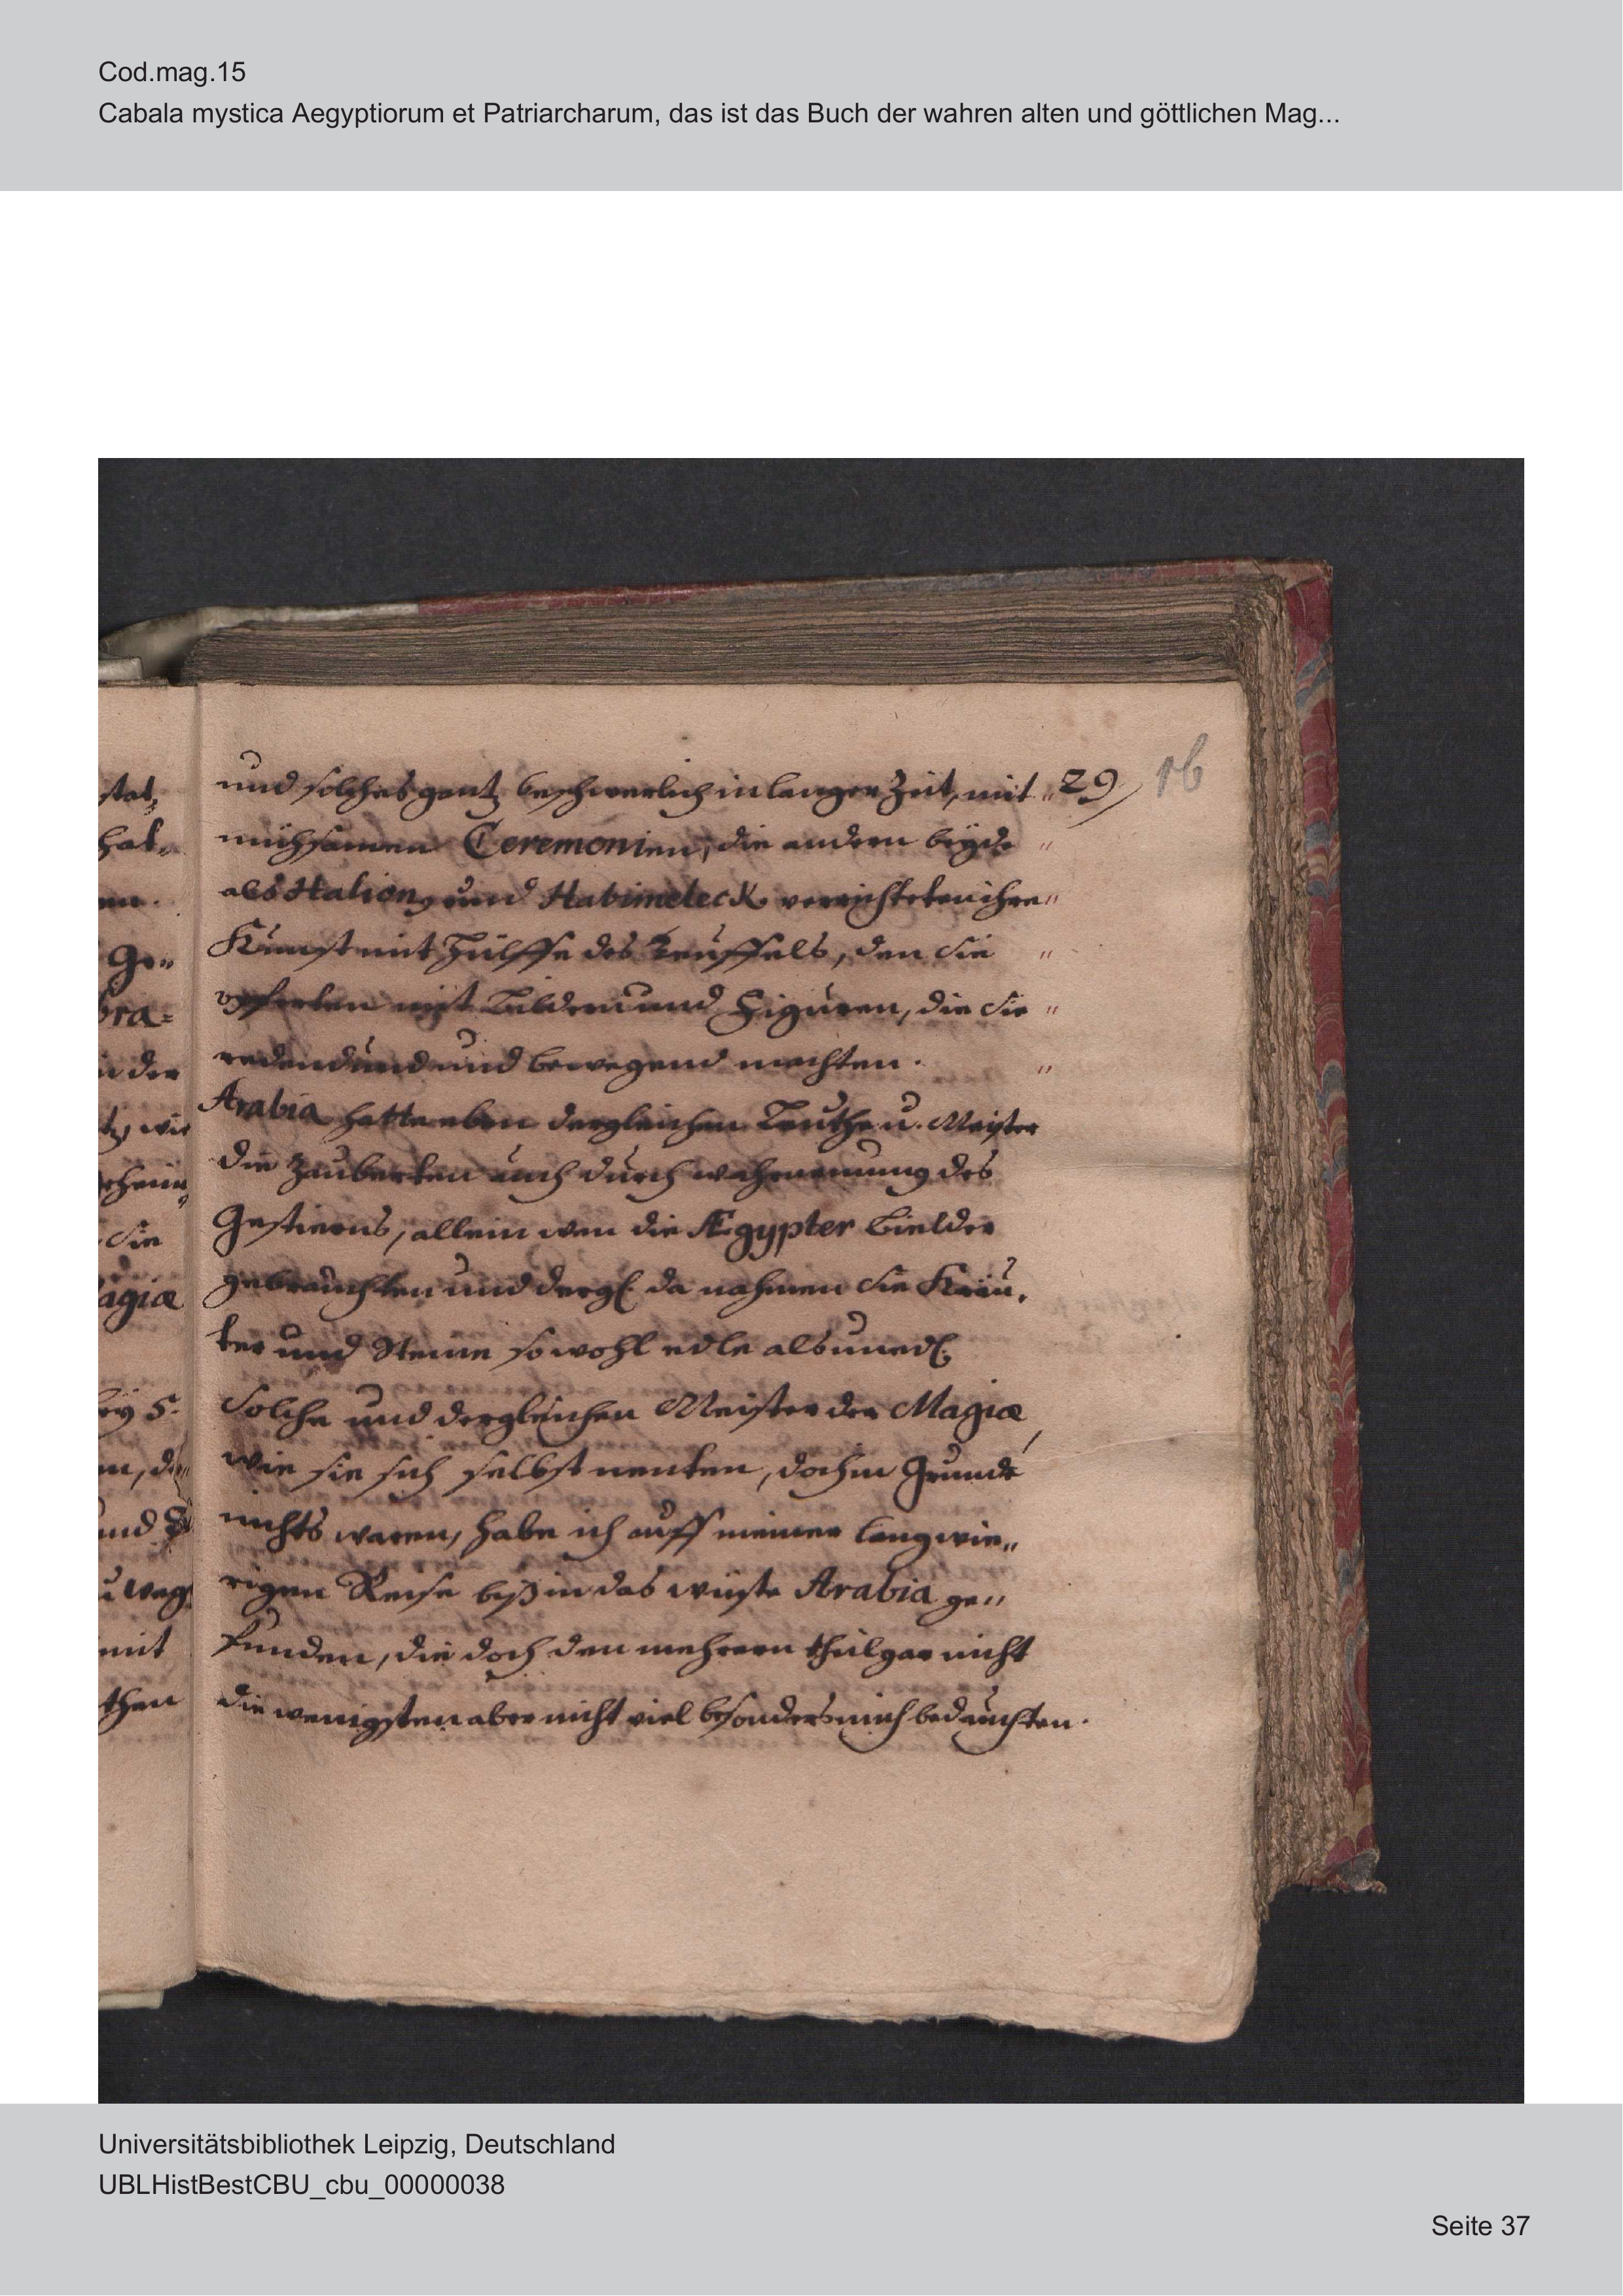 Cod.mag.15
Cabala mystica Aegyptiorum et Patriarcharum, das ist das Buch der wahren alten und göttlichen Mag...
29
16
und solches gantz beschwerlich in langer Zeit, mit „
mühsamen Ceremonien, die andern beyde „
als Halion, und Habimeleck verrichteten ihre „
Kunst mit Hülffe des Teuffels, den Sie „
opferten mit Bildern und Figuren, die Sie „
redend und und bewegend machten. „
Arabia hatte eben dergleichen Leuthe u. Meister
die Zauberten auch durch wahrnemung des
Gestierns, allein wen die Ægypter Bielder
gebrauchten und dergl. da nahmen Sie Kräu,
ter und Steine so wohl edle als unedl.
Solche und dergleichen Meister der Magiæ,
wie sie sich selbst nenten, doch im Grunde
nichts waren, habe ich auff meiner langwie„
rigen Reise biß in das wüste Arabia ge„
funden, die doch den mehrern theil gar nicht
die wenigsten aber nicht viel besonders mich bedauchten.
stat,
hat„
en.
Ge„
bra=
in der
wie
Sie
agiæ
5.
und
weg
mit
then
Universitätsbibliothek Leipzig, Deutschland
UBLHistBestCBU_cbu_00000038
Seite 37